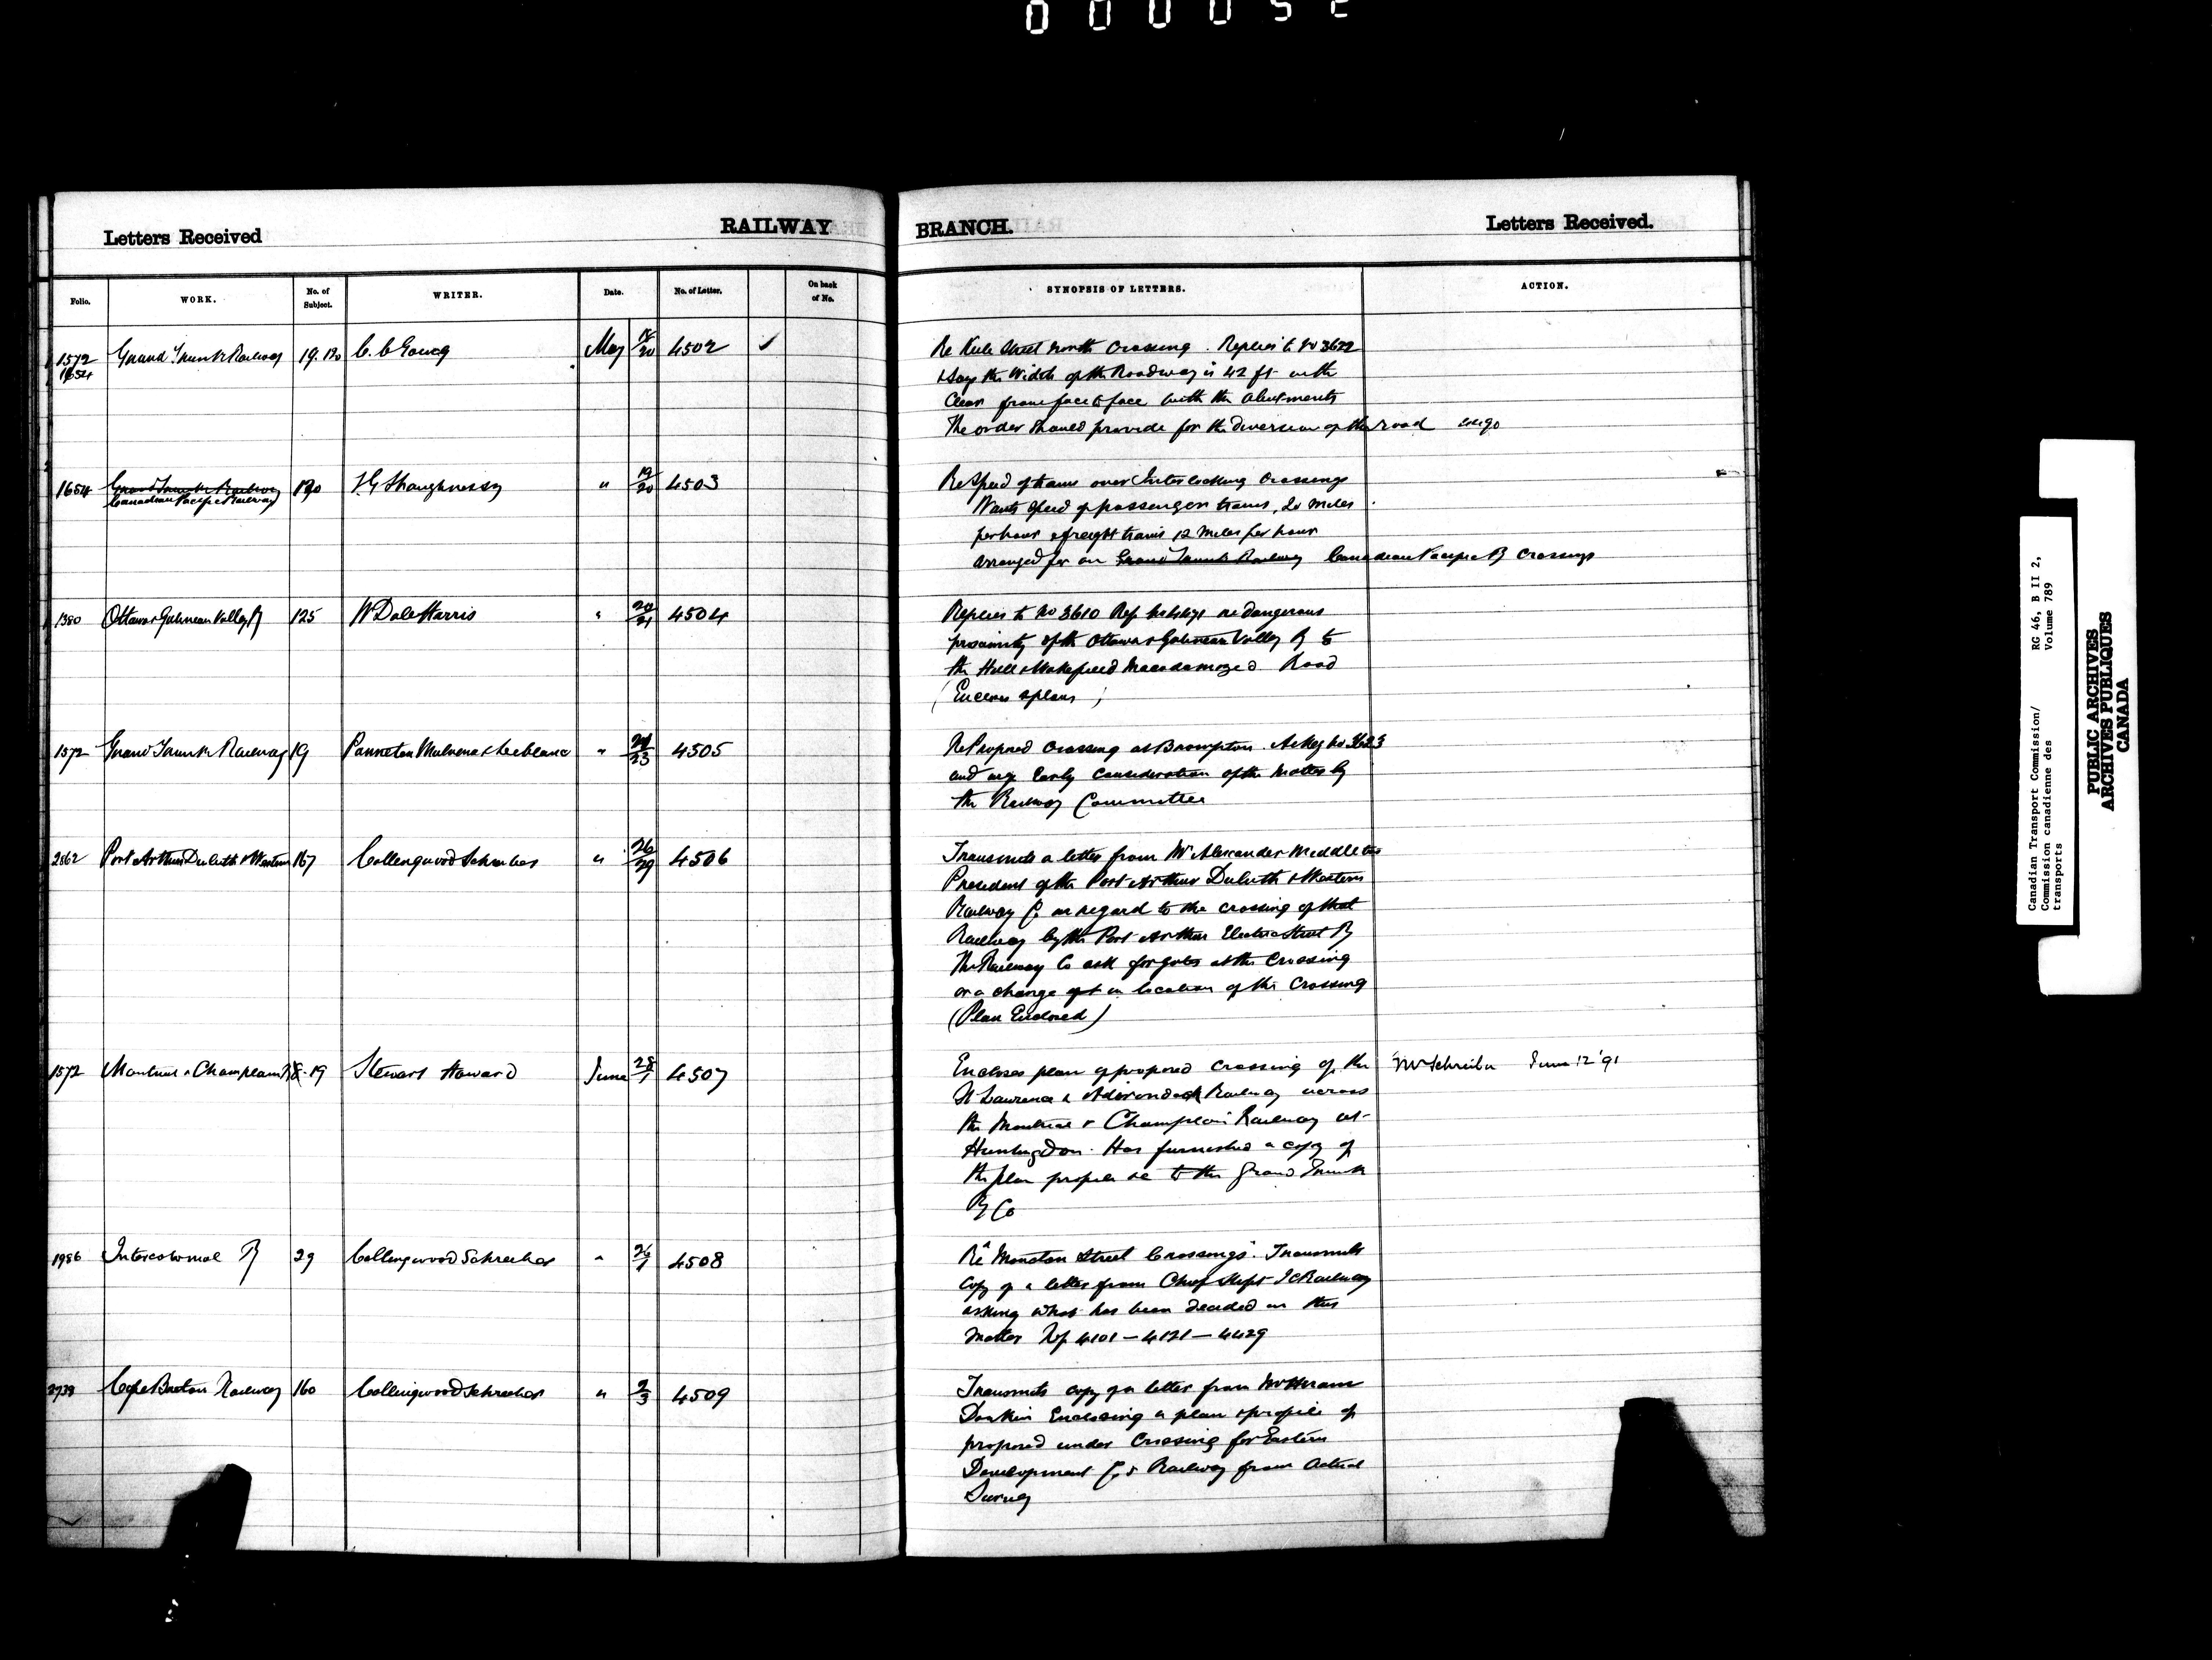 000052
Letters Received
RAILWAY
BRANCH.
Letters Received.
Folio.
WORK.
No. of Subject.
WRITER.
Date.
No. of Letter.
On back of No.
SYNOPSIS OF LETTERS.
ACTION.
1572 Grand Trunk Railway 19. 190 May 18/20 4502 ✓
1654
Street North Crossing. Replies to No 3622
& says the Width of the Roadway is 42 ft with
Clear from face to face with the abutments
The order should provide for the diversion of the road
1654 Grand Trunk Railway 190 T G Shaughnessy " 19/20 4503
Canadian Pacific Railway
Re Speed of trains over Interlocking Crossings
Wants speed of passenger trains, 20 miles
per hour & freight trains 12 miles per hour
arranged for on Grand Trunk Railway Canadian Pacific Ry Crossings
1380 Ottawa & Gatineau Valley Ry 125 W Dale Harris " 20/21 4504
Replies to No 3610 Ref re dangerous
proximity of the Ottawa & Gatineau Valley Ry to
the Hull & Wakefield Macadamized Road
(Encloses plans)
1572 Grand Trunk Railway 19 Panneton Mulvena & Leblanc " 21/23 4505
Re Proposed Crossing at Brompton. Ackgs No 3623
and urge Early Consideration of the Matter by
the Railway Committee
2862 Port Arthur Duluth & Western 167 Collingwood Schreiber " 26/29 4506
Transmits a letter from Mr Alexander Middleton
President of the Port Arthur Duluth & Western
Railway Co in regard to the crossing of that
Railway by the Port Arthur Electric Street Ry
The Railway Co ask for gates at the Crossing
or a change in location of the Crossing
(Plan Enclosed)
1572 Montreal & Champlain Ry 8-19 Stewart Howard June 28/1 4507
Encloses plan of proposed crossing of the
St Lawrence & Adirondack Railway across
the Montreal & Champlain Railway at
Huntingdon. Has furnished a copy of
the plan profile &c to the Grand Trunk
Ry Co
Mr Schreiber June 12 '91
1986 Intercolonial Ry 29 Collingwood Schreiber " 26/1 4508
Re "Moncton Street Crossings". Transmits
Copy of a letter from Chief Supt I C Railway
asking what has been decided in this
matter Ref 4101 - 4121 - 4429
2739 Cape Breton Railway 160 Collingwood Schreiber " 2/3 4509
Transmits copy of a letter from Mr Hiram
Donkin Enclosing a plan & profile of
proposed under Crossing for Eastern
Development Co's Railway from Actual
Survey
Canadian Transport Commission/
Commission canadienne des
transports
RG 46, B II 2,
Volume 789
PUBLIC ARCHIVES
ARCHIVES PUBLIQUES
CANADA